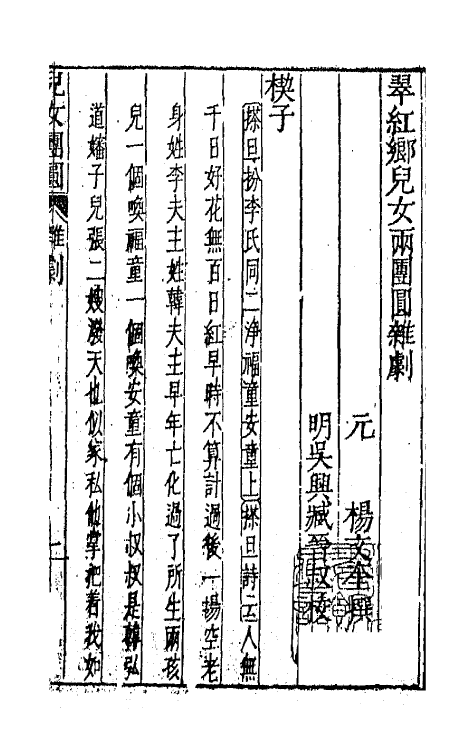 翠紅鄉兒女兩團圓雜劇
元　楊文奎撰
明吳興臧晉叔校
楔子
搽旦扮李氏同二淨福童安童上搽旦詩云人無
千日好花無百日紅早時不算計過後一塲空老
身姓李夫主姓韓夫主早年亡化過了所生兩孩
兒一個喚福童一個喚安童有個小叔叔是韓弘
道嬸子兒張二嫂潑天也似家私他掌把着我如
兒女團圓 雜劇 一